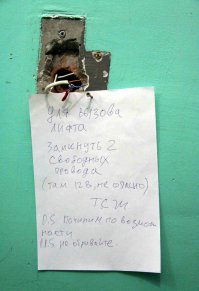 для вызова
лифта
замкнуть 2
свободных
провода
(там 12 в, не опасно)
ТСЖ
P.S починим по возмож
ности
P.S не обрывайте